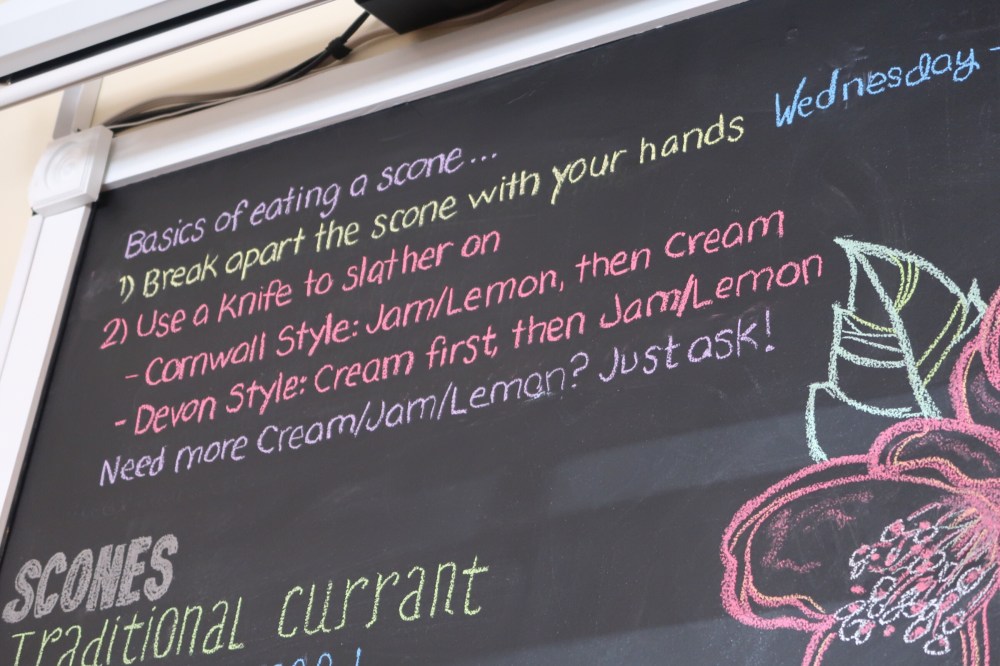 Wednesday -
Basics of eating a scone...
1) Break apart the scone with your hands
2) Use a Knife to slather on
- Cornwall Style: Jam/Lemon, then Cream
- Devon Style: Cream first, then Jam/Lemon
Need more Cream/Jam/Lemon? Just ask!
SCONES
Traditional currant